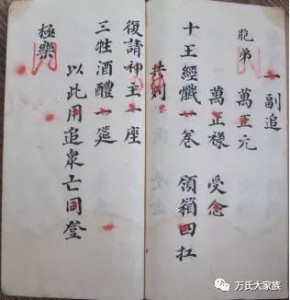 一副追
胞弟 萬正元
萬正祿 受念
十王經懺一卷 領箱四扛
共
復請神主一座
三牲酒醴一筵
以此用追衆亡同登
極樂
万氏大家族